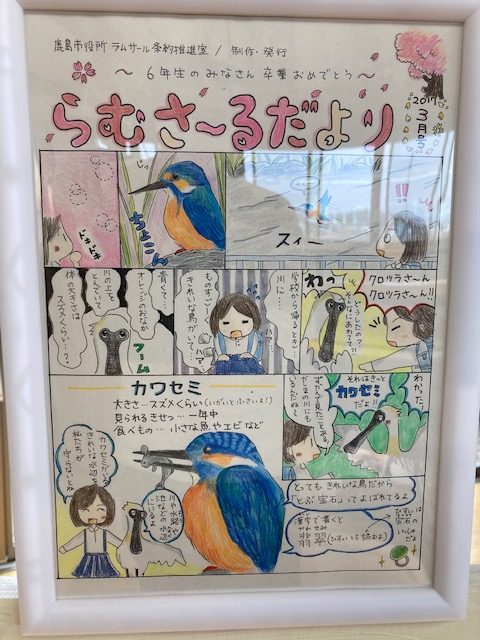 鹿島市役所 ラムサール条約推進室 / 制作・発行
～ 6年生のみなさん 卒業おめでとう ～
らむさ～るだより
2017
3月号
!!
スイー
ちょこん
ドキドキ
クロツラさ～ん
クロツラさ～ん!!
わっ
どうしたの？
そんなにあわてて?!
学校から帰るとき
川に…
ものすごーく
きれいな鳥がいて…
青くて…
オレンジのおなか
川の上を
とんでいて
体の大きさは
スズメくらい…？
フーム
わかった
それはきっと
カワセミ
だよ!!
ずかんで見たことある
だまの川にも
いるんだね!
カワセミ
大きさ…スズメくらい(いがいと小さいよ！)
見られるきせつ…一年中
食べもの…小さな魚やエビなど
川や水路や
池などの水辺
にいるよ
カワセミがいる
きれいな水辺を
私たちが
守らないとね
とってもきれいな鳥だから
「とぶ宝石」ってよばれてるよ
漢字で書くと
かわせみ
翡翠
(ひすいとも読むよ)
ひすいは
宝石の
いっしゅ
だよ